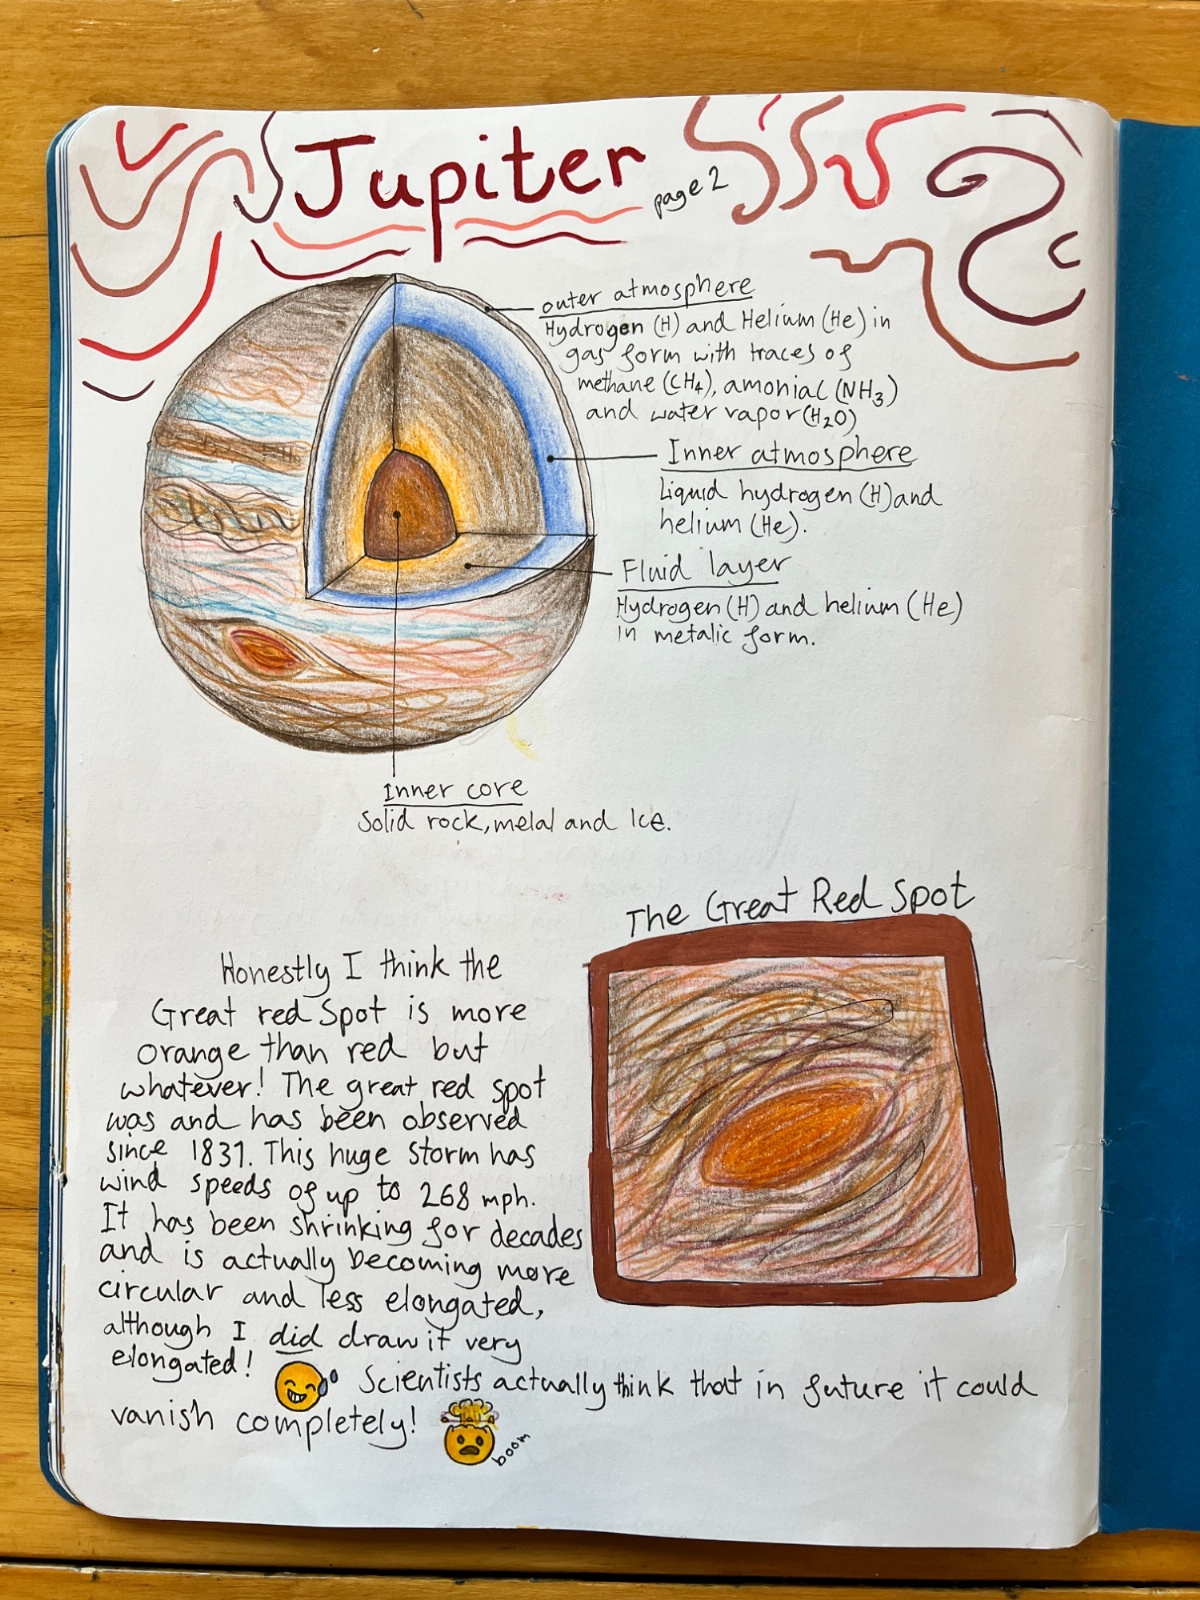 Jupiter
page 2
outer atmosphere
Hydrogen (H) and Helium (He) in
gas form with traces of
methane (CH4), amonial (NH3)
and water vapor (H2O)
Inner atmosphere
Liquid hydrogen (H) and
helium (He).
Fluid layer
Hydrogen (H) and helium (He)
in metalic form.
Inner core
Solid rock, metal and Ice.
The Great Red Spot
Honestly I think the
Great red Spot is more
orange than red but
whatever! The great red spot
was and has been observed
since 1831. This huge storm has
wind speeds of up to 268 mph.
It has been shrinking for decades
and is actually becoming more
circular and less elongated,
although I did draw it very
elongated!
Scientists actually think that in future it could
vanish completely!
boom